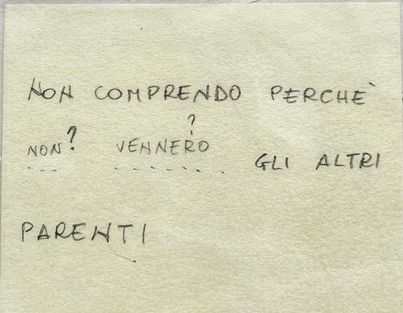 NON COMPRENDO PERCHÈ
NON? VENNERO? GLI ALTRI
PARENTI